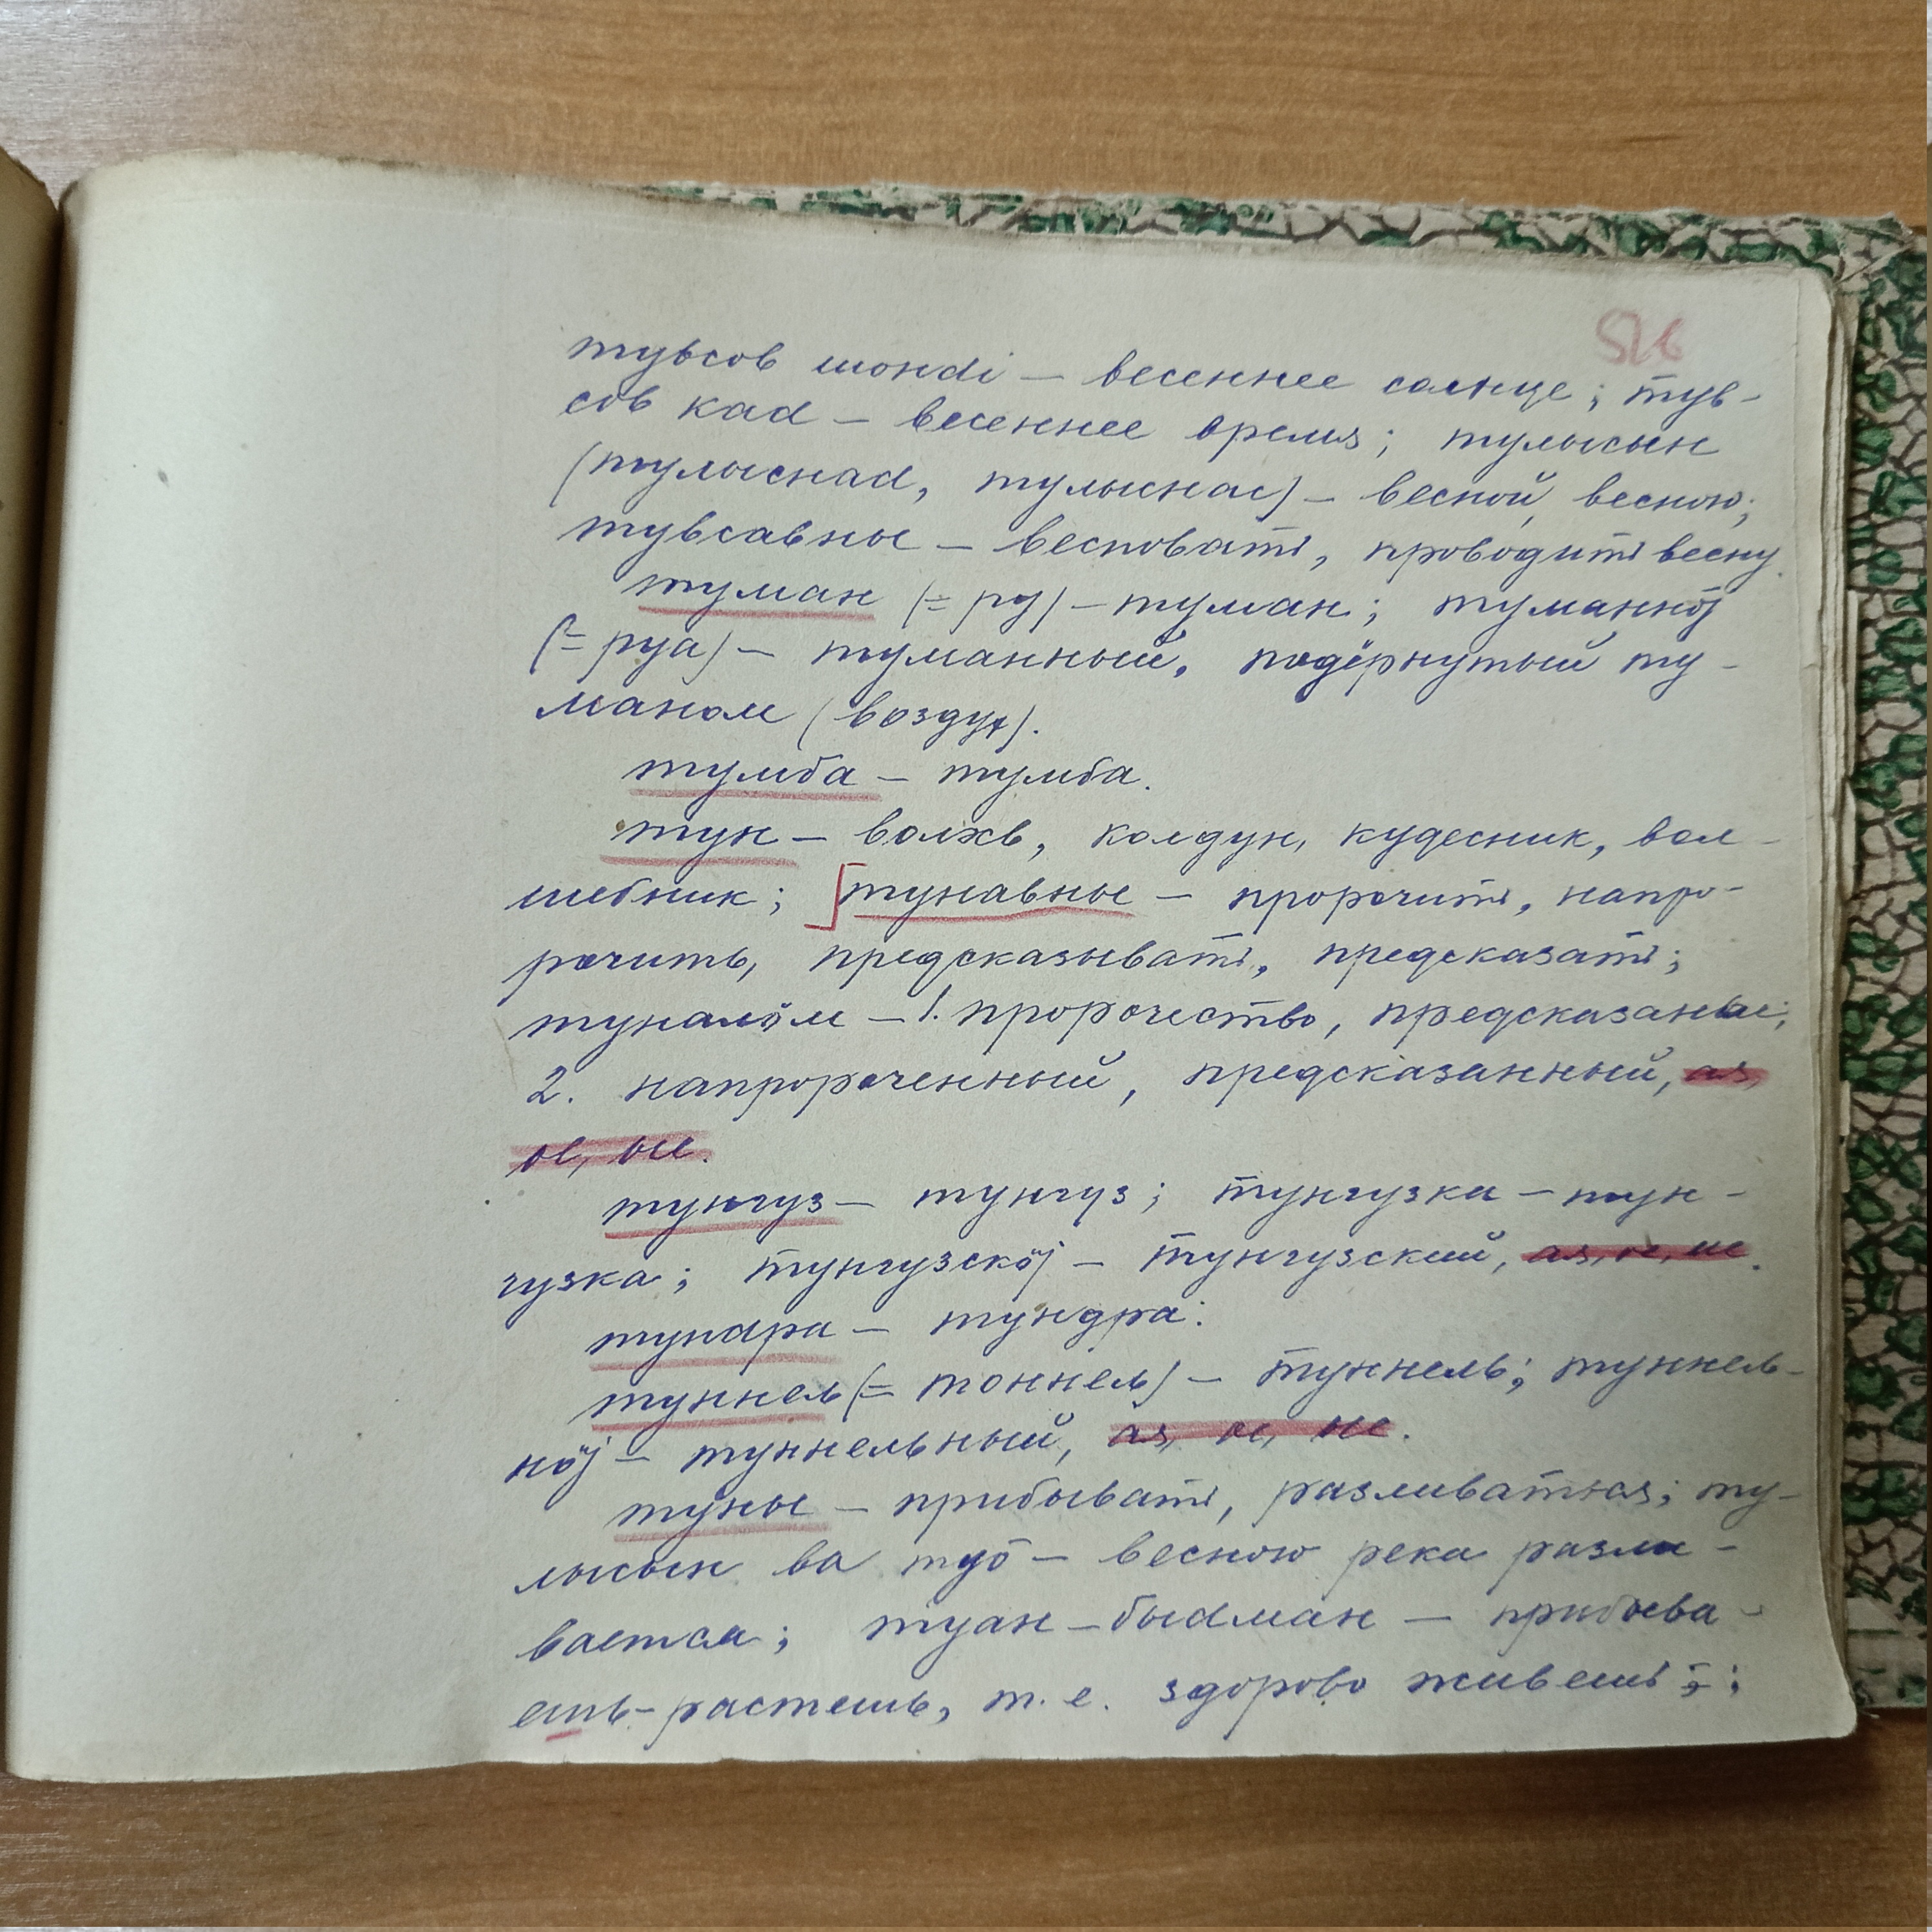 526
тувсов шондi – весеннее солнце; тув-
сов кад – весеннее время; тулысын
(тулыснад, тулыснас) – весной, весною;
тувсавные – весновать, проводить весну.
туман (= ру) – туман; туманнöj
(= руа) – туманный, подёрнутый ту-
маном (воздух).
тумба – тумба.
тун – волхв, колдун, кудесник, вол-
шебник; тунавны – пророчить, напро-
рочить, предсказывать, предсказать;
туналöм – 1. пророчество, предсказанье;
2. напророченный, предсказанный, ая,
ое, ые.
тунгуз – тунгуз; тунгузка – тун-
гузка; тунгузскöj – тунгузский, ая, ое, ие.
тундра – тундра.
туннель (= тоннель) – туннель; туннель-
нöj – туннельный, ая, ое, ые.
туны – прибывать, разливаться; ту-
лысын ва туö – весною река разли-
вается; туан-быдман – прибыва-
ешь-растешь, т. е. здорово живешь;